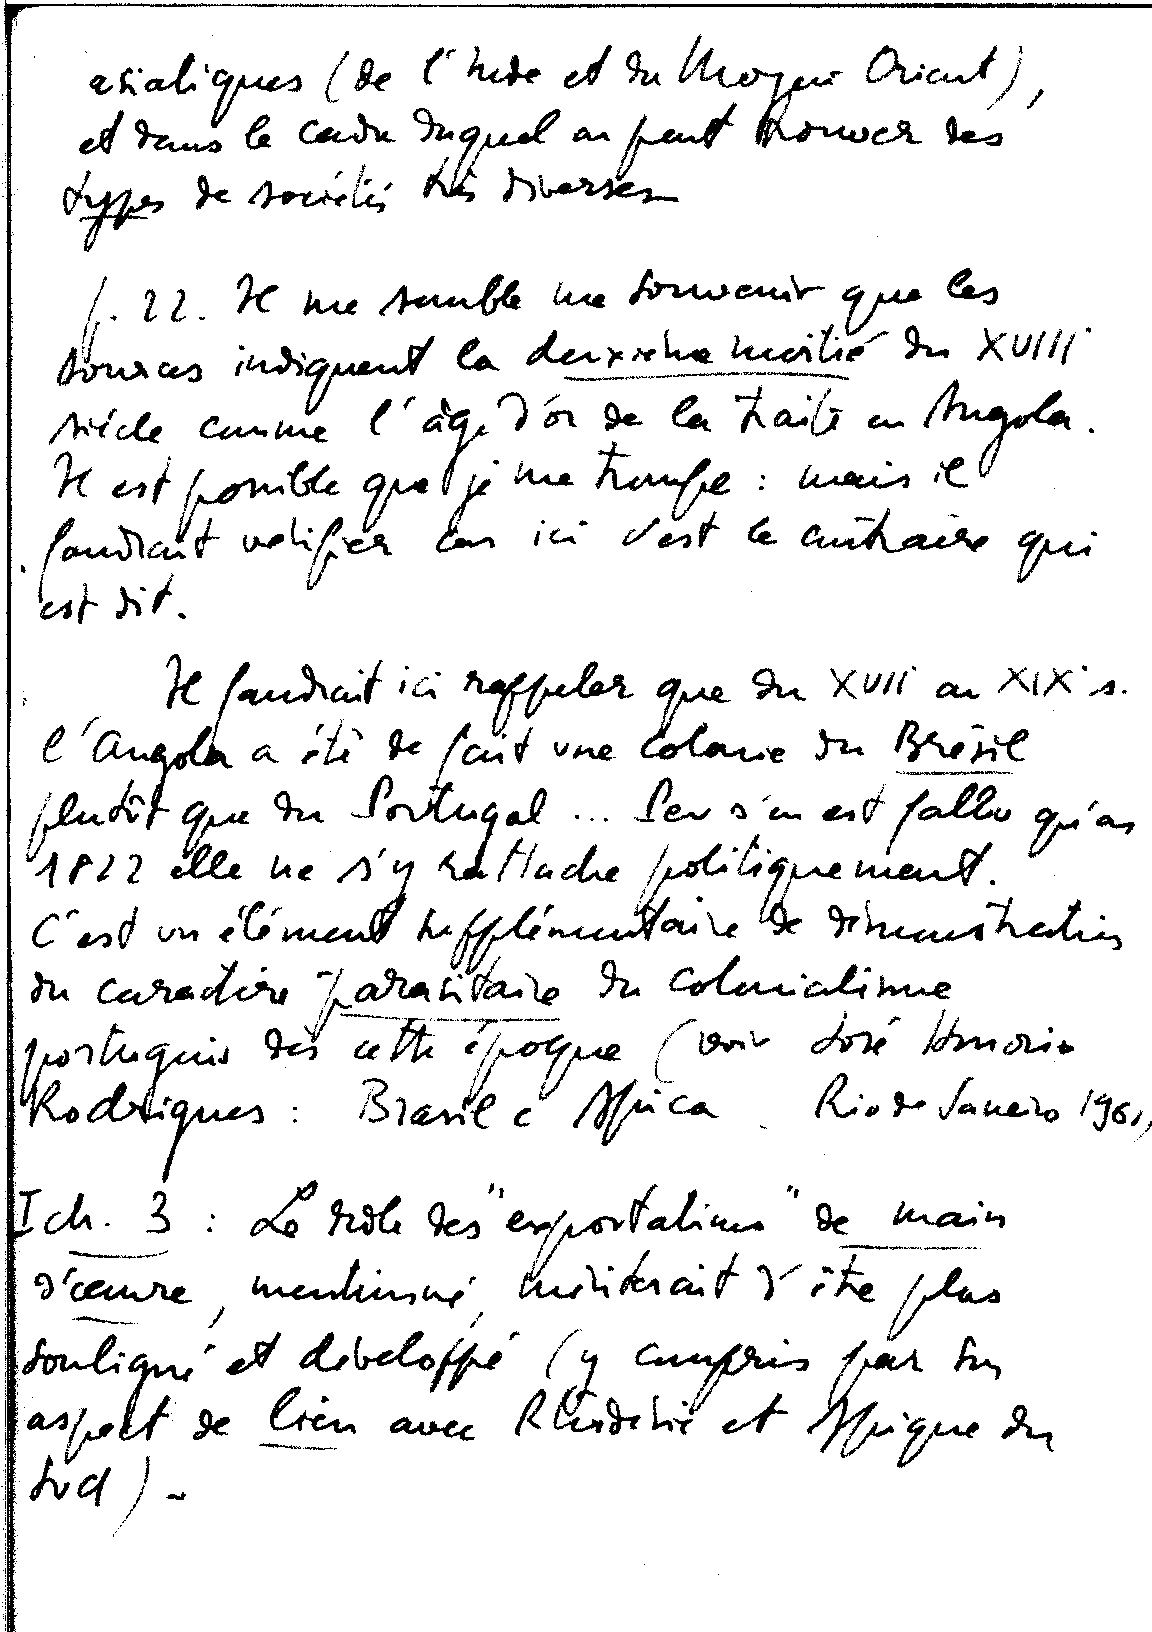 asiatiques (de l'Inde et du Moyen Orient),
et dans le cadre duquel on peut trouver des
types de sociétés très diverses
p. 22. Il me semble me souvenir que les
sources indiquent la deuxième moitié du XVIII
siècle comme l'âge d'or de la traite en Angola.
Il est possible que je me trompe : mais il
faudrait vérifier car ici c'est le contraire qui
est dit.
Il faudrait ici rappeler que du XVII au XIX s.
l'Angola a été de fait une colonie du Brésil
plutôt que du Portugal... Peu s'en est fallu qu'en
1822 elle ne s'y rattache politiquement.
C'est un élément supplémentaire de démonstration
du caractère parasitaire du colonialisme
portugais dès cette époque (voir José Honorio
Rodrigues : Brasil e Africa Rio de Janeiro 1961)
I ch. 3 : Le rôle des "exportations" de main
d'œuvre, mentionné, mériterait d'être plus
souligné et développé (y compris par son
aspect de lien avec Rhodésie et Afrique du
Sud).